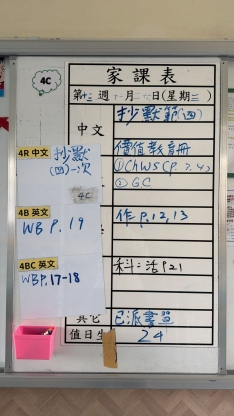 4C
家課表
第十三週十一月二十日(星期三)
中文
抄默範(四)
價值教育冊
4R 中文
抄默
(四)一次
①Chws(P.3,4)
②GC
4C
4B 英文
WB P. 19
作P.12,13
4BC 英文
WBP.17-18
科:活P21
其它
已派書單
值日生
24